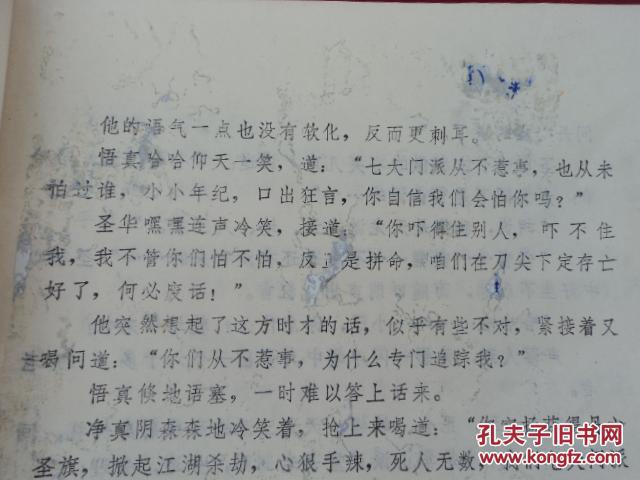 他的语气一点也没有软化，反而更刺耳。
悟真哈哈仰天一笑，道：“七大门派从不惹事，也从未
怕过谁，小小年纪，口出狂言，你自信我们会怕你吗？”
圣华嘿嘿连声冷笑，接道：“你吓得住别人，吓不住
我，我不管你们怕不怕，反正是拼命，咱们在刀尖下定存亡
好了，何必废话！”
他突然想起了这方时才的话，似乎有些不对，紧接着又
喝问道：“你们从不惹事，为什么专门追踪我？”
悟真倏地语塞，一时难以答上话来。
净真阴森森地冷笑着，抢上来喝道：“
圣旗，掀起江湖杀劫，心狠手辣，死人无数，我们七大门派
孔夫子旧书网